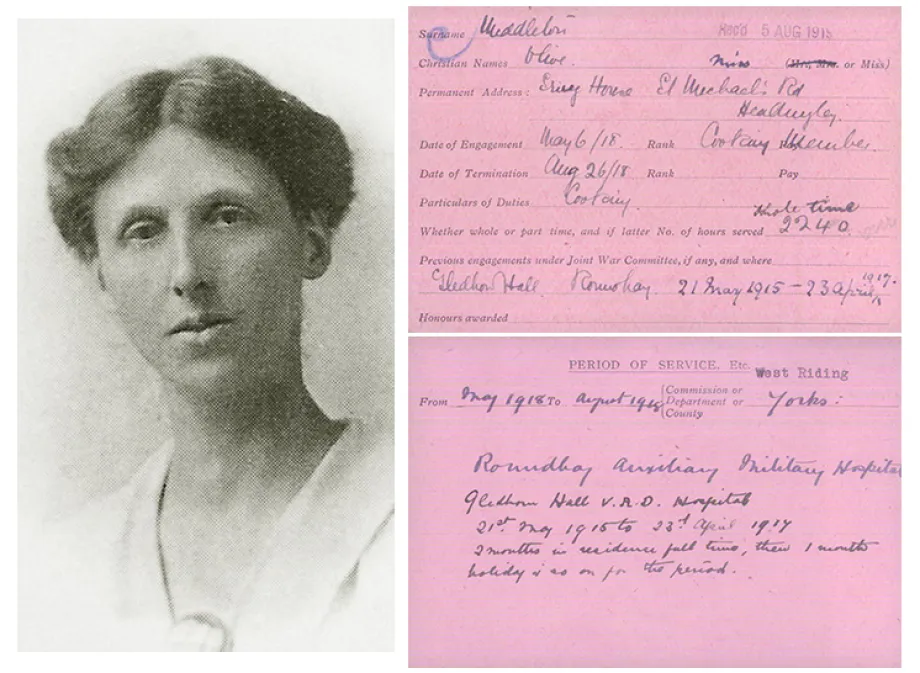 Surname Middleton Rec'd 5 AUG 1918
Christian Names Olive Miss (Mrs, Mrs. or Miss)
Permanent Address: House St Michael's Rd
Headingley.
Date of Engagement May 6/18 Rank Cooking Member.
Date of Termination Aug 26/18 Rank Pay
Particulars of Duties Cooking.
Whole time
Whether whole or part time, and if latter No. of hours served 2240
Previous engagements under Joint War Committee, if any, and where
Gledhow Hall Roundhay. 21 May 1915 - 23 April, 1917.
Honours awarded
PERIOD OF SERVICE, Etc. West Riding
From May 1918 To August 1918 {Commission or Department or County Yorks:
Roundhay Auxiliary Military Hospital
Gledhow Hall V.A.D. Hospital
21st May 1915 to 23rd April 1917
2 months in residence full time, then 1 months
holiday & so on for the period.